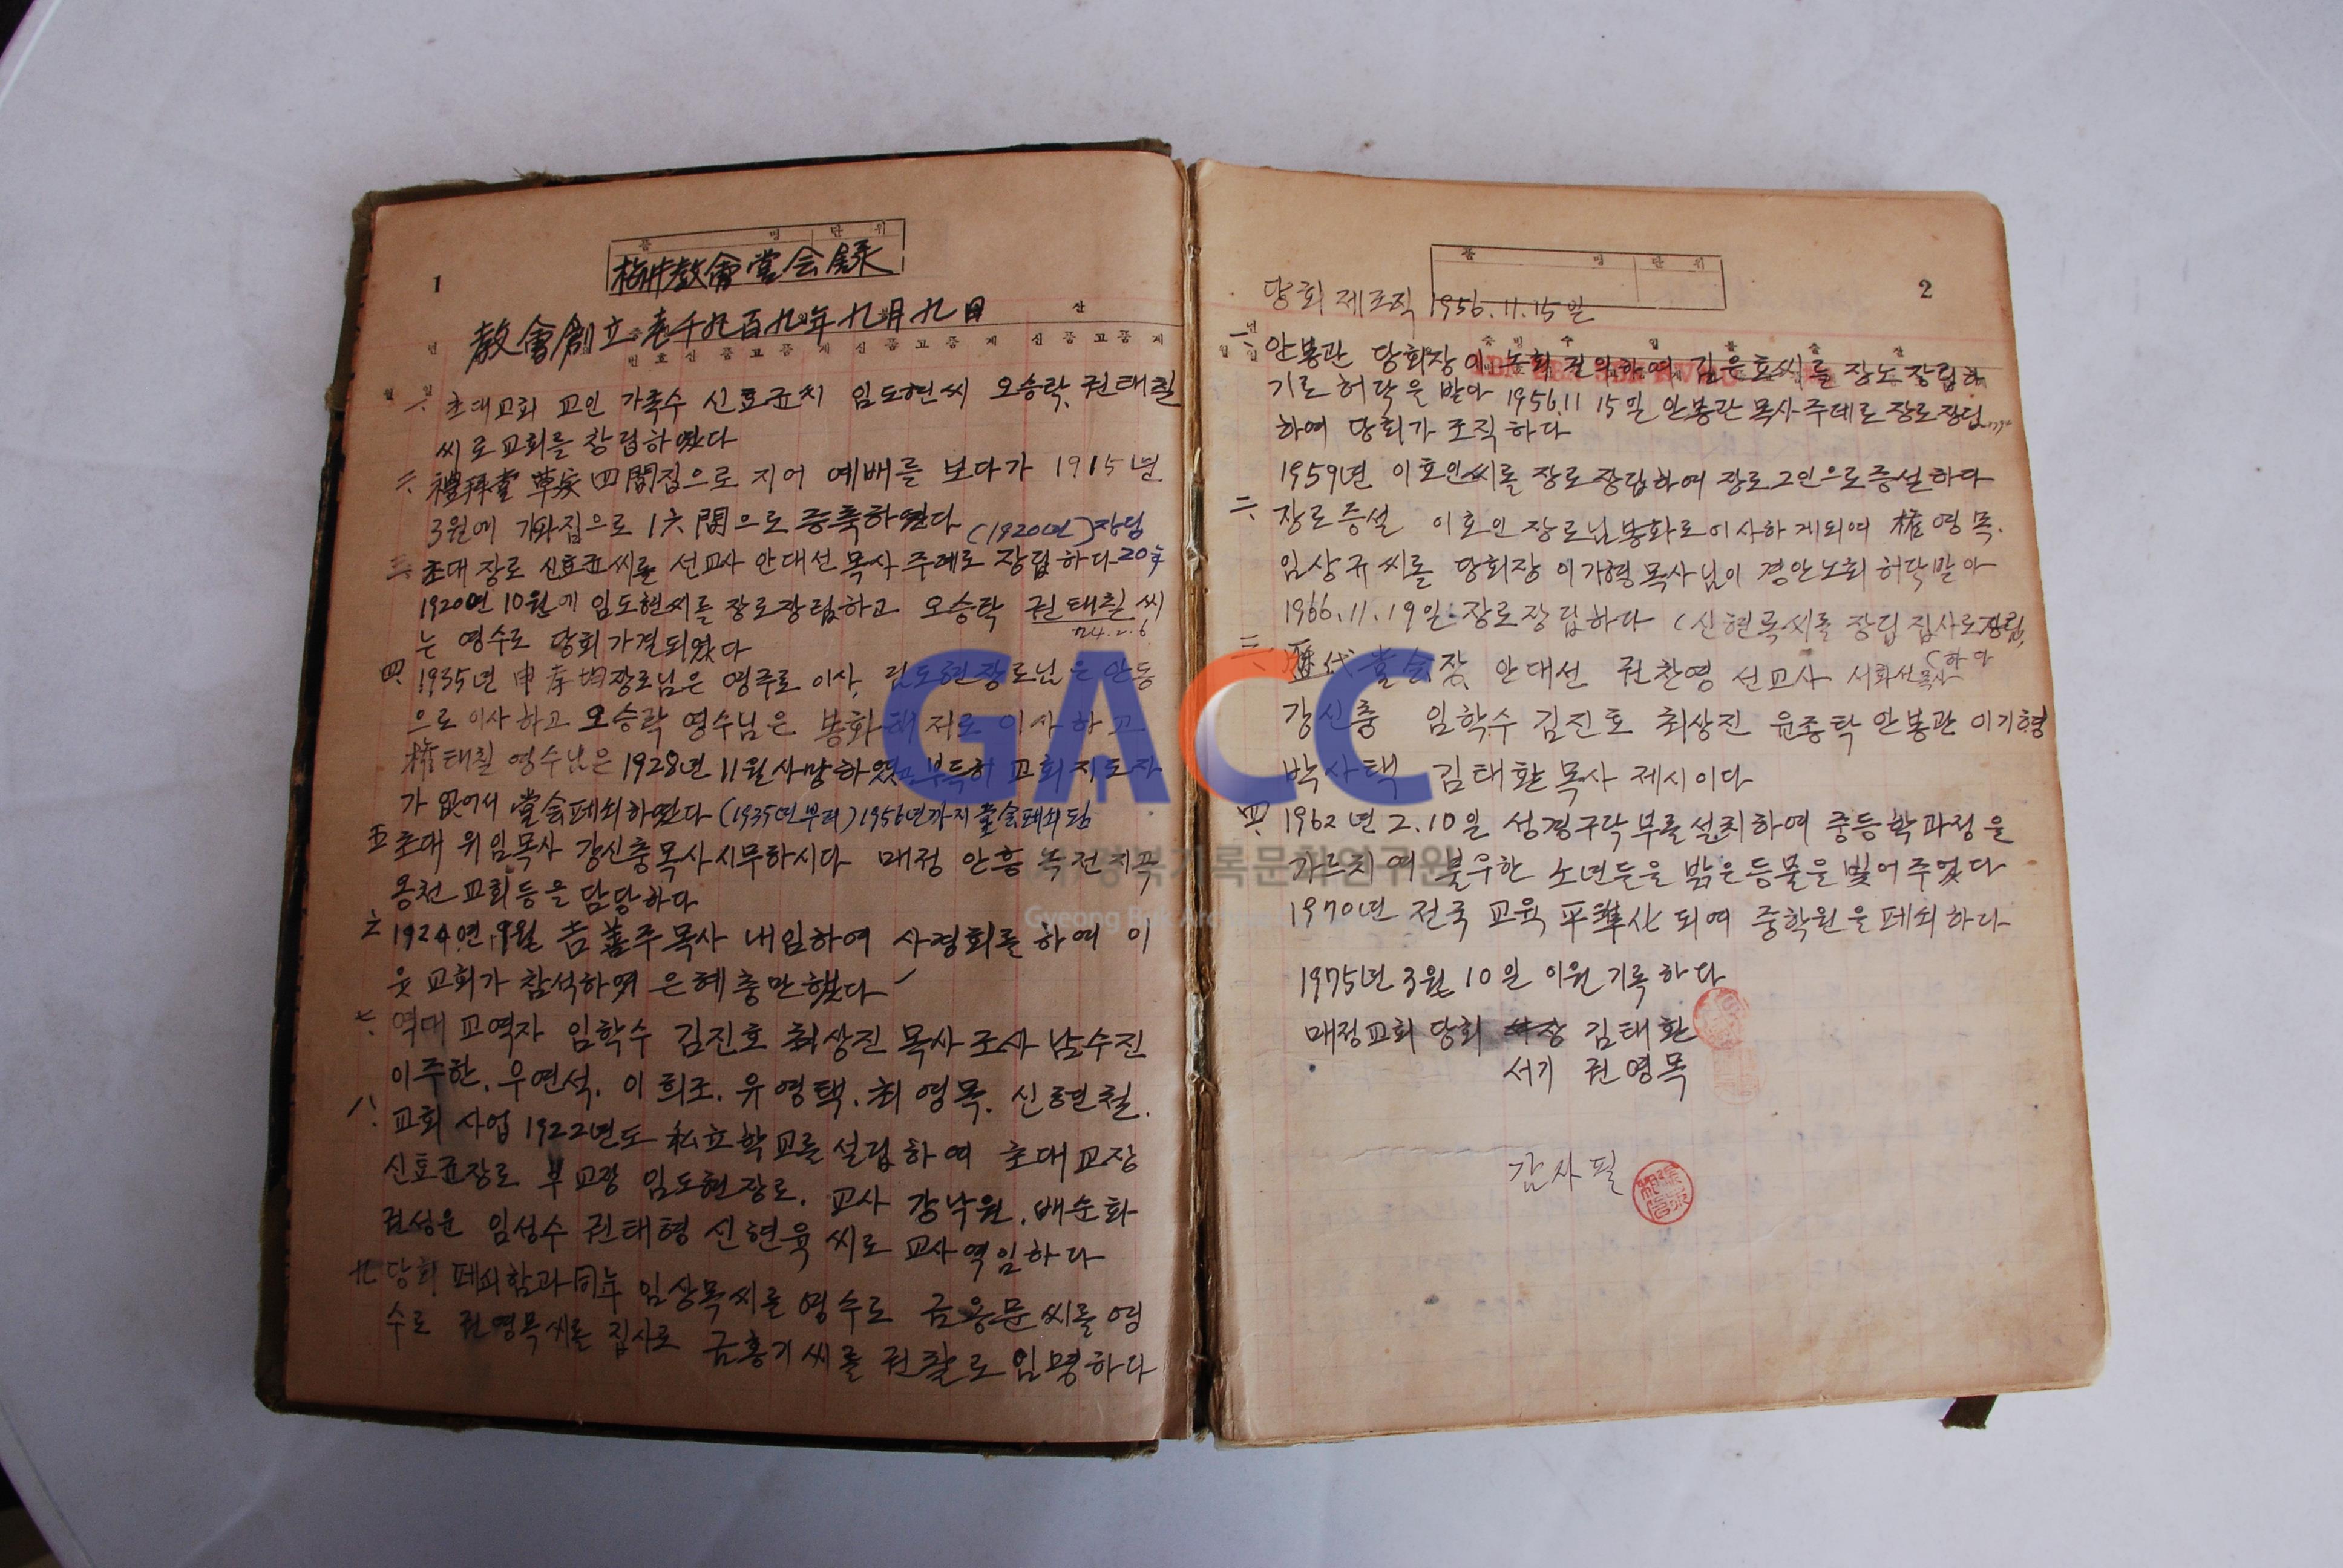 1
품 명 단 위
梅井教會堂会録
教會創立 壱千九百九年 九月 九日
산
년 번호 신 품 고 품 계 신 품 고 품 계 신 품 고 품 계
월 일
一、초대교회 교인 가족수 신효균씨 임도현씨 오승락, 권태칠
씨로 교회를 창립하였다
二、禮拜堂 草家 四間집으로 지어 예배를 보다가 1915년
3월에 기와집으로 1六間으로 증축하였다 (1920년) 장립
三、초대 장로 신효균씨를 선교사 안대선 목사 주례로 장립하다
1920년 10월에 임도현씨를 장로장립하고 오승락 권태칠 씨
는 영수로 당회가결되었다
四、1935년 申孝均장로님은 영주로 이사, 림도현장로님은 안동
으로 이사하고 오승락 영수님은 봉화 저로 이사하고
権태칠 영수님은 1928년 11월 사망하였고 부득히 교회지도자
가 없어서 堂会폐쇠하였다 (1935년부터) 1956년까지 堂会폐쇠됨
五 초대 위임목사 강신충목사 시무하시다 매정 안흥 녹전 지곡
옹천 교회등을 담당하다
六 1924년, 9월 吉善주 목사 내임하여 사경회를 하여 이
웃 교회가 참석하여 은혜충만했다
七、역대 교역자 임학수 김진호 최상진 목사 조사 남수진
이주한, 우연석, 이희조, 유영택, 최영목, 신현철,
八、교회 사업 1922년도 私立학교를 설립하여 초대교장
신효균장로 부교장 임도현장로, 교사 강낙원, 배순화
권성운 임성수 권태형 신현욱 씨로 교사역임하다
九 당회 폐쇠함과 同年 임상목씨를 영수로 금용문씨를 영
수로 권영목씨를 집사로 금홍기씨를 권찰로 임명하다
2
품 명 단 위
당회 제조직 1956.11.15일
一、안봉관 당회장이 노회 결의하여 김은호씨를 장노장립하
기로 허락을 받아 1956.11 15일 안봉관 목사 주례로 장로장립
하여 당회가 조직하다
1959년 이호인씨를 장로장립하여 장로2인으로증설하다
二、장로증설 이호인 장로님 봉화로이사하게되여 権영목,
임상규씨를 당회장 이기형목사님이 경안노회 허락받아
1966.11.19일 장로장립하다 (신현록씨를 장립 집사로장립,
하다
三、歴代堂会장 안대선 권찬영 선교사 서화선목사
강신충 임학수 김진호 최상진 윤종탁 안봉관 이기형
박사택 김태환목사 제시이다
四、1962년 2.10일 성경구락부를 설치하여 중등학과정을
가르치여 불우한 소년들을 밝은등불을 빛어주었다
1970년 전국 교육 平準化 되여 중학원을 폐쇠하다
1975년 3월 10일 이원 기록하다
매정교회 당회 장 김태환
서기 권영목
감사필
GACC
경북기록문화연구원
Gyeong Buk